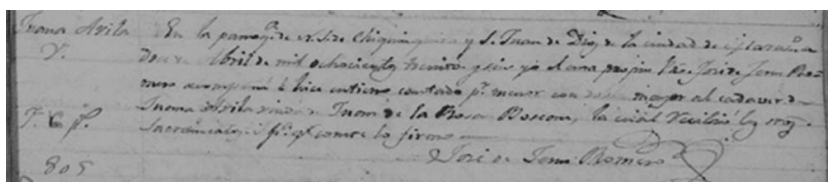 Juana Avila
V.
En la parroq.ª de N. S. de Chiquinquira y S. Juan de Dios de la ciudad de Maracaº a
doce Abril de mil ochocientos treinta y seis yo el cura propio Pbo. José de Jesus Ro-
mero acompañé é hice entierro cantado pr. menor con mayor al cadaver de
Juana Avila viuda de Juan de la Rosa Boscan, la cual recibió los stos.
Sacramentos. I pª. qe. conste lo firmo
F. C. pl.
José de Jesus Romero
805